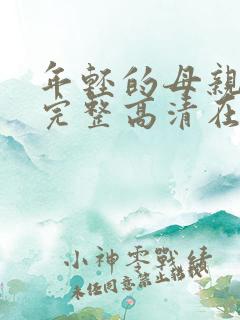 年轻的母亲
完整高清在
小神零戰績
未经同意禁止转载